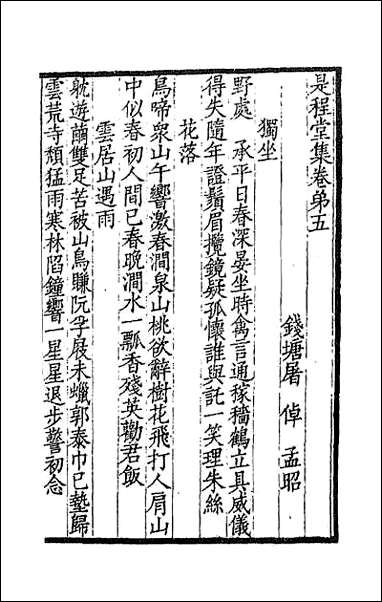 是程堂集卷第五
錢塘屠 倬 孟昭
獨坐
野處 承平日春深晏坐時寓言通稼穡鶴立具威儀
得失隨年證鬚眉攬鏡疑孤懷誰與託一笑理朱絲
花落
鳥啼衆山午響激春澗泉山桃欲辭樹花飛打人肩山
中似春初人間已春晚澗水一瓢香殘英勸君飯
雲居山遇雨
躭遊繭雙足苦被山鳥賺阮孚屐未蠟郭泰巾已墊歸
雲荒寺頹猛雨寒林陷鐘響一星星退步警初念